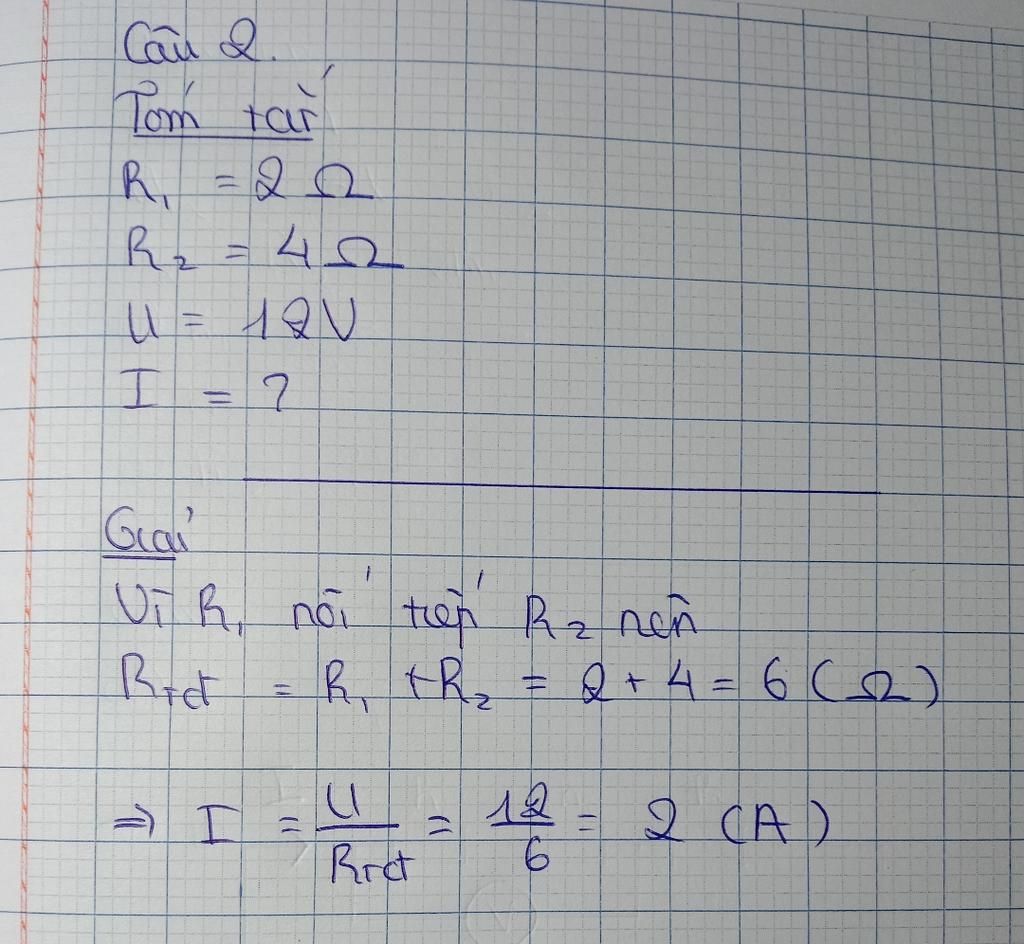 Câu 2.
Tóm tắt
R₁ = 2 Ω
R₂ = 4 Ω
U = 12V
I = ?
Giải
Vì R₁ nối tiếp R₂ nên
Rtđ = R₁ + R₂ = 2 + 4 = 6 (Ω)
⇒ I = U/Rtđ = 12/6 = 2 (A)